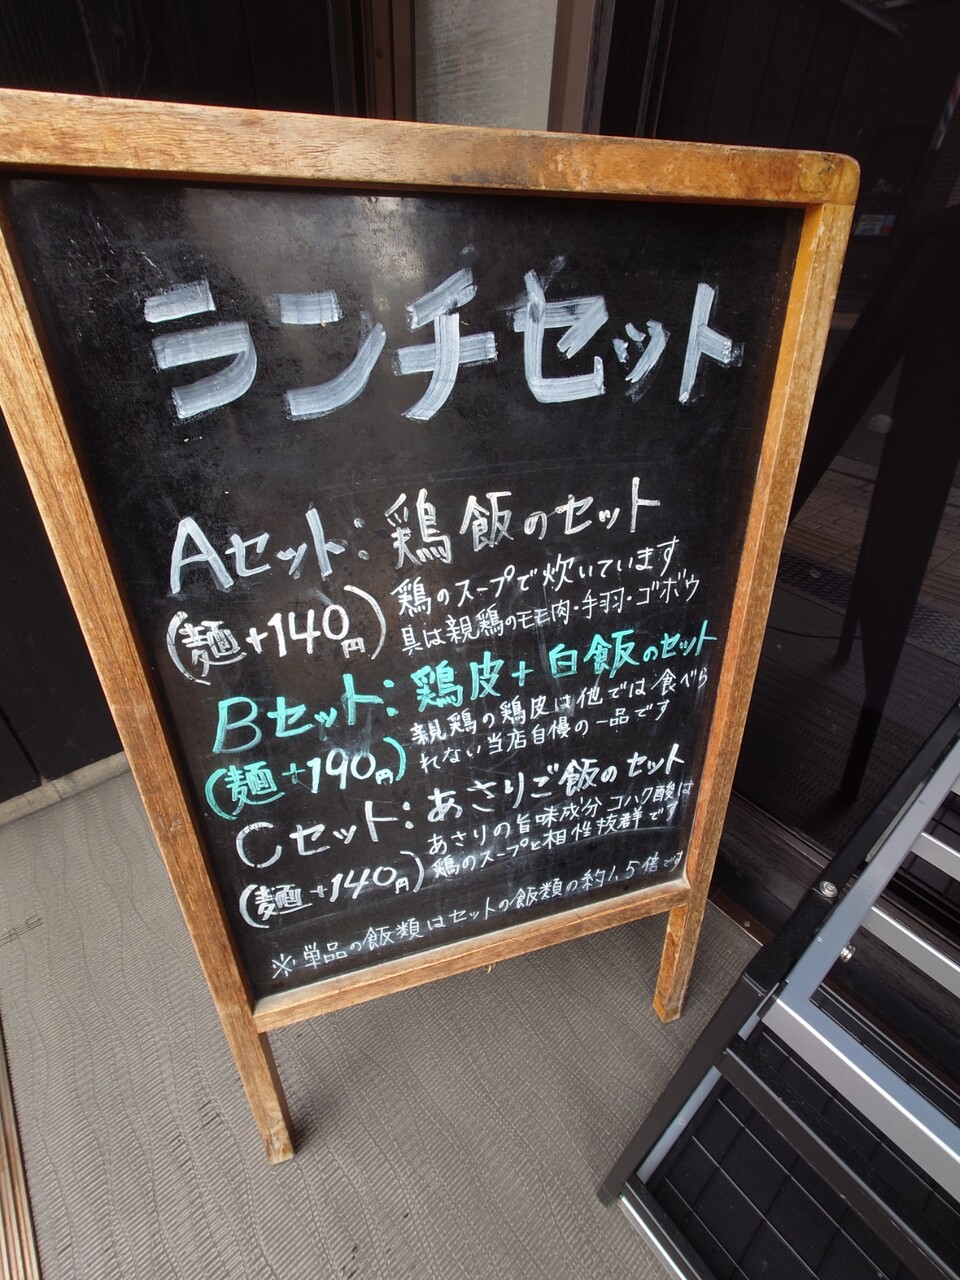 ランチセット
Aセット:鶏飯のセット
(麺+140円)
鶏のスープで炊いています
具は親鶏のモモ肉・手羽・ゴボウ
Bセット:鶏皮+白飯のセット
(麺+190円)
親鶏の鶏皮は他では食べら
れない当店自慢の一品です
Cセット:あさりご飯のセット
(麺+140円)
あさりの旨味成分コハク酸は
鶏のスープと相性抜群です
※単品の飯類はセットの飯類の約1.5倍です